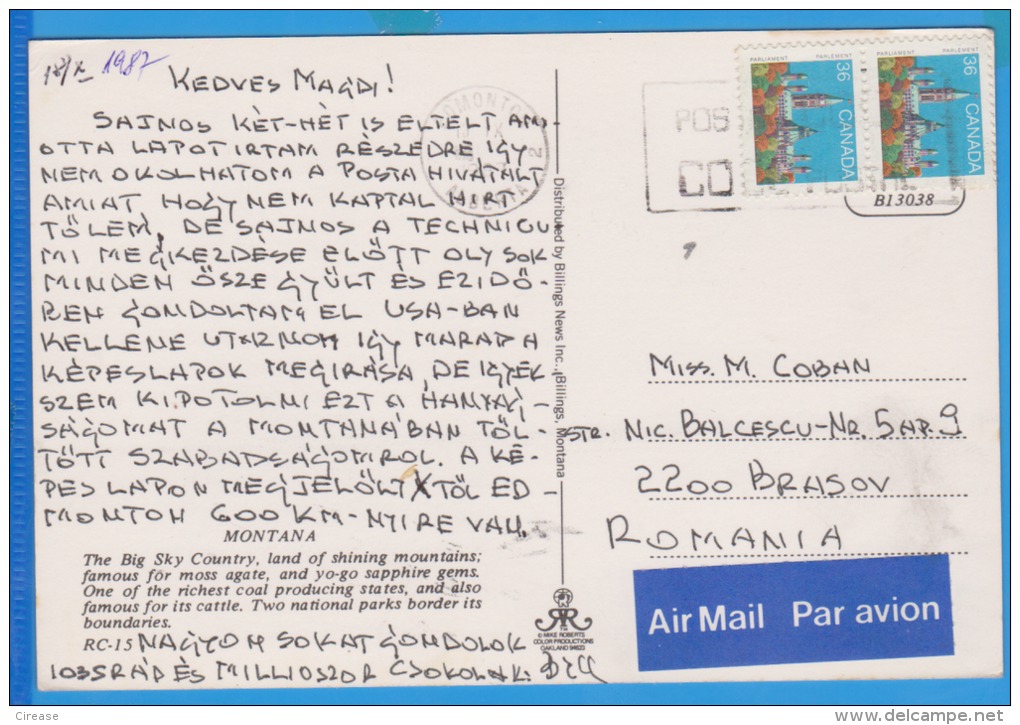 18/X 1987
KEDVES MAGDI!
SAJNOS KÉT-HÉT IS ELTELT AMI-
OTTA LAPOT IRTAM RÉSZEDRE IGY
NEM OKOLHATOM A POSTA HIVATALT
AMIAT HOGY NEM KAPTAL HIRT
TŐLEM. DE SAJNOS A TECHNICU
MI MEGKEZDÉSE ELŐTT OLY SOK
MINDEN ŐSZE GYŰLT ÉS EZIDŐ-
BEN GONDOLTAM EL USA-BAN
KELLENE UTAZNOM IGY MARAD A
KÉPESLAPOK MEGIRÁSA, DE IGYEK
SZEM KIPOTOLNI EZT A HANYAG-
SÁGOMAT A MONTANÁBAN TÖL-
TÖTT SZABADSÁGOMROL. A KÉ-
PES LAPON MEGJELÖLT X TÖL ED-
MONTON 600 KM-NYIRE VAN.
MONTANA
The Big Sky Country, land of shining mountains;
famous for moss agate, and yo-go sapphire gems.
One of the richest coal producing states, and also
famous for its cattle. Two national parks border its
boundaries.
RC-15 NAGYON SOKAT GONDOLOK
RÁD ÉS MILLIOSZOR CSOKOLAK:
Distributed by Billings News Inc., Billings, Montana
TM
© MIKE ROBERTS
COLOR PRODUCTIONS
OAKLAND 94623
EDMONTON
POS
CO
PARLIAMENT PARLEMENT
36
CANADA
PARLIAMENT PARLEMENT
36
CANADA
B13038
MISS. M. COBAN
STR. NIC. BALCESCU-NR. 5 AP. 9
2200 BRASOV
ROMANIA
Air Mail Par avion
Cirease
delcampe.net